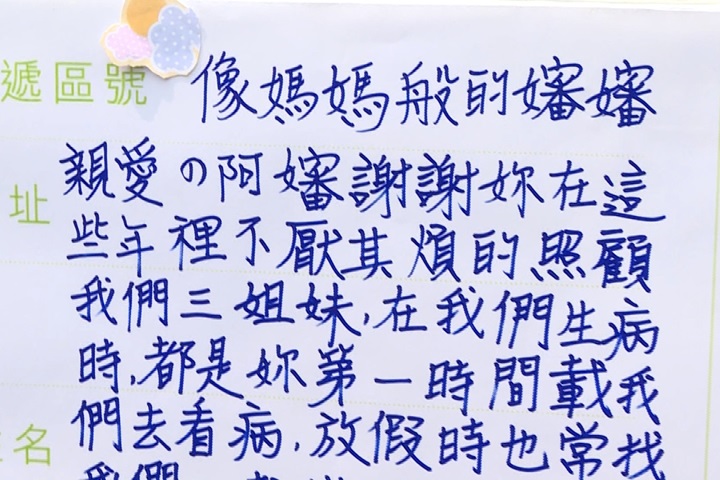 遞區號
像媽媽般的嬸嬸
親愛の阿嬸謝謝妳在這
址
些年裡不厭其煩的照顧
我們三姐妹,在我們生病
時,都是妳第一時間載我
們去看病,放假時也常找
名
我們